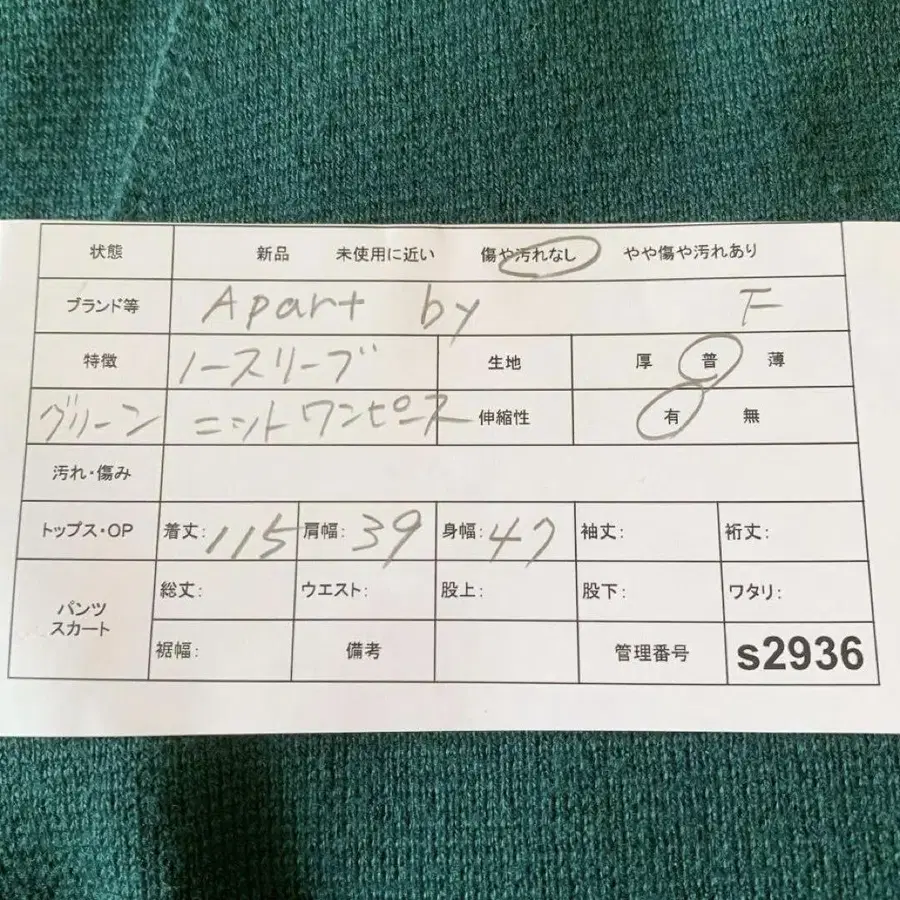 状態 新品 未使用に近い 傷や汚れなし やや傷や汚れあり
ブランド等 Apart by F
特徴 ノースリーブ 生地 厚 普 薄
グリーン ニットワンピース 伸縮性 有 無
汚れ・傷み
トップス・OP 着丈: 115 肩幅: 39 身幅: 47 袖丈: 裄丈:
パンツ スカート 総丈: ウエスト: 股上: 股下: ワタリ:
裾幅: 備考 管理番号 s2936